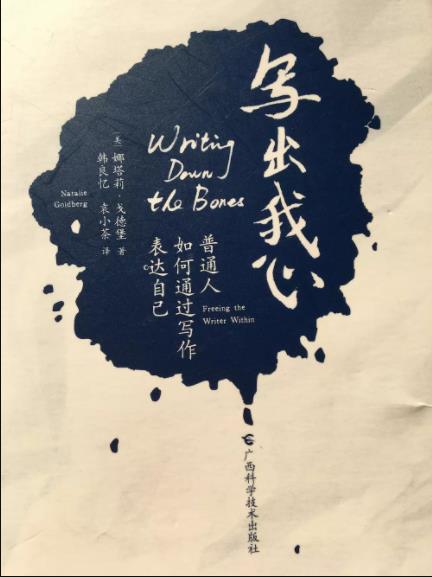 写出我心
Writing
Down
the Bones
普通人
如何通过写作
表达自己
Freeing the
Writer Within
[美] 娜塔莉·戈德堡 著
韩良忆 袁小茶 译
Natalie
Goldberg
广西科学技术出版社